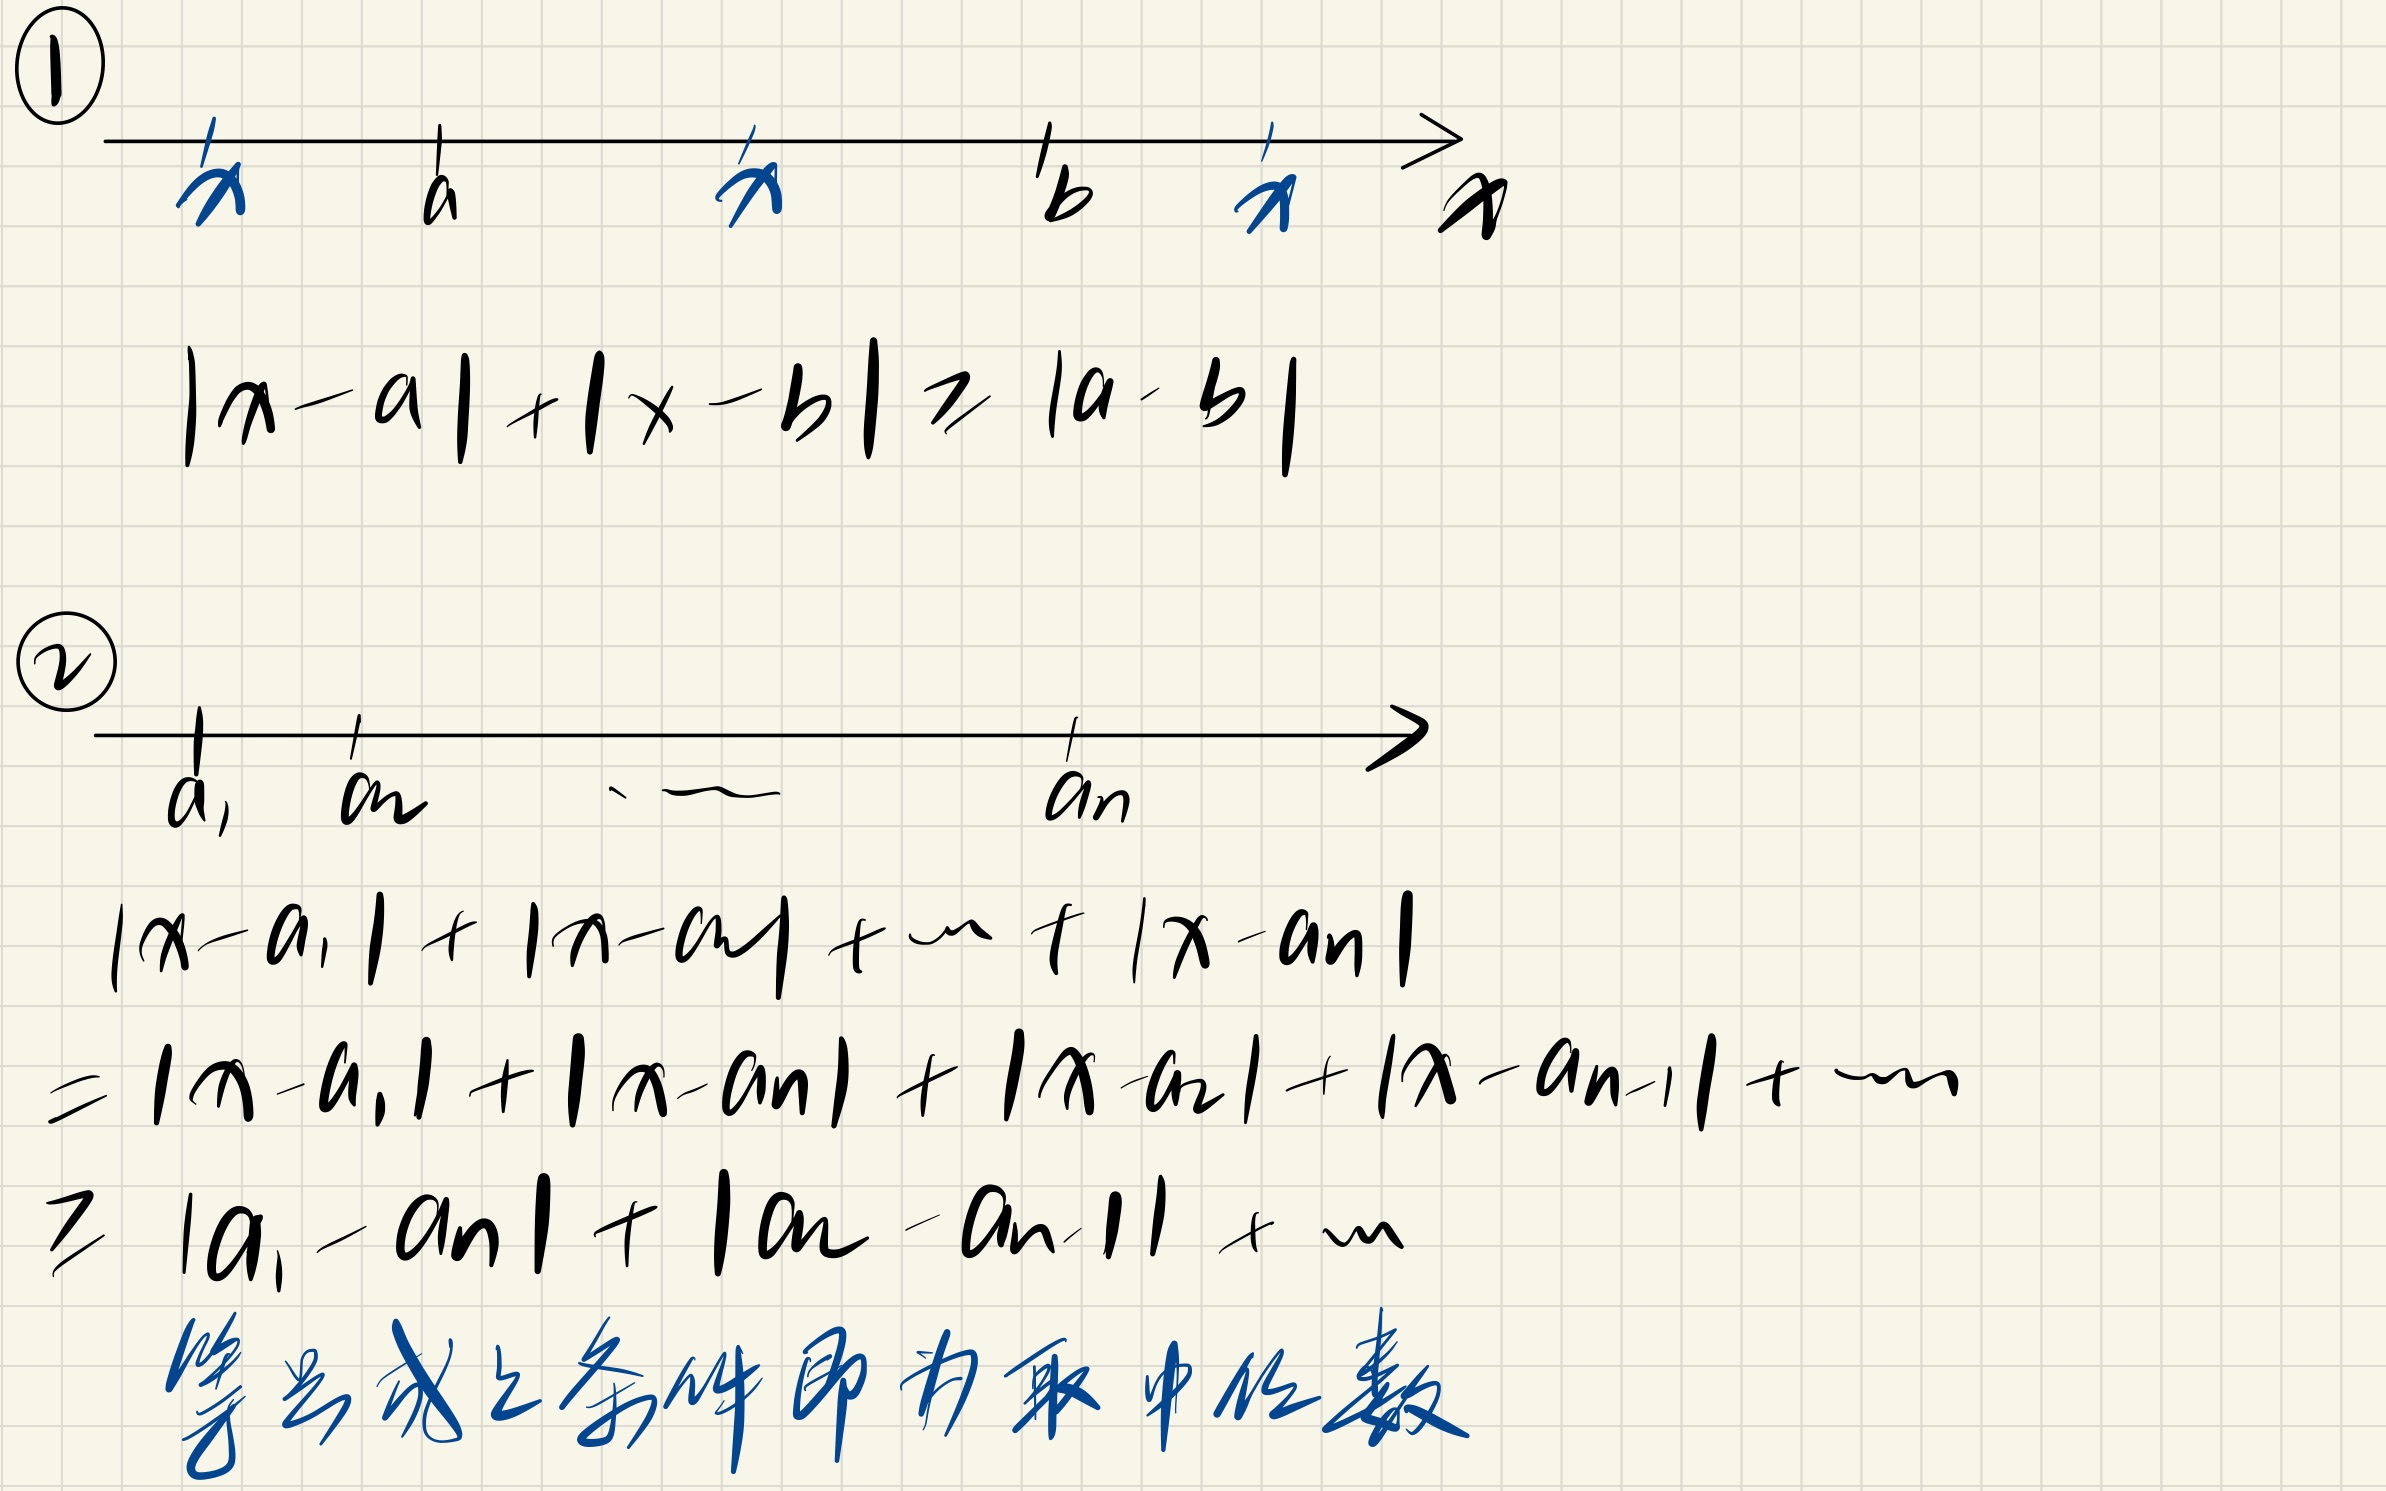 ①
x a x b x x
|x-a|+|x-b|≥|a-b|
②
a₁ a₂ ... aₙ
|x-a₁|+|x-a₂|+...+|x-aₙ|
=|x-a₁|+|x-aₙ|+|x-a₂|+|x-aₙ₋₁|+...
≥|a₁-aₙ|+|a₂-aₙ₋₁|+...
等号成立条件即为取中位数